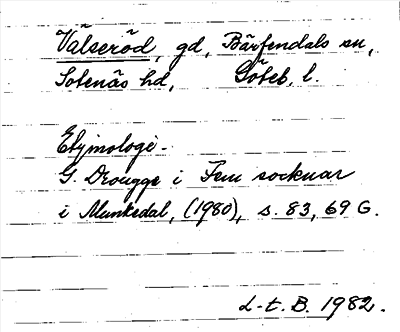 Välseröd, gd, Bärfendals sn,
Sotenäs hd, Göteb. l.
Etymologi -
G. Drougge i Fem socknar
i Munkedal, (1980), s. 83, 69 G.
L-t. B. 1982.